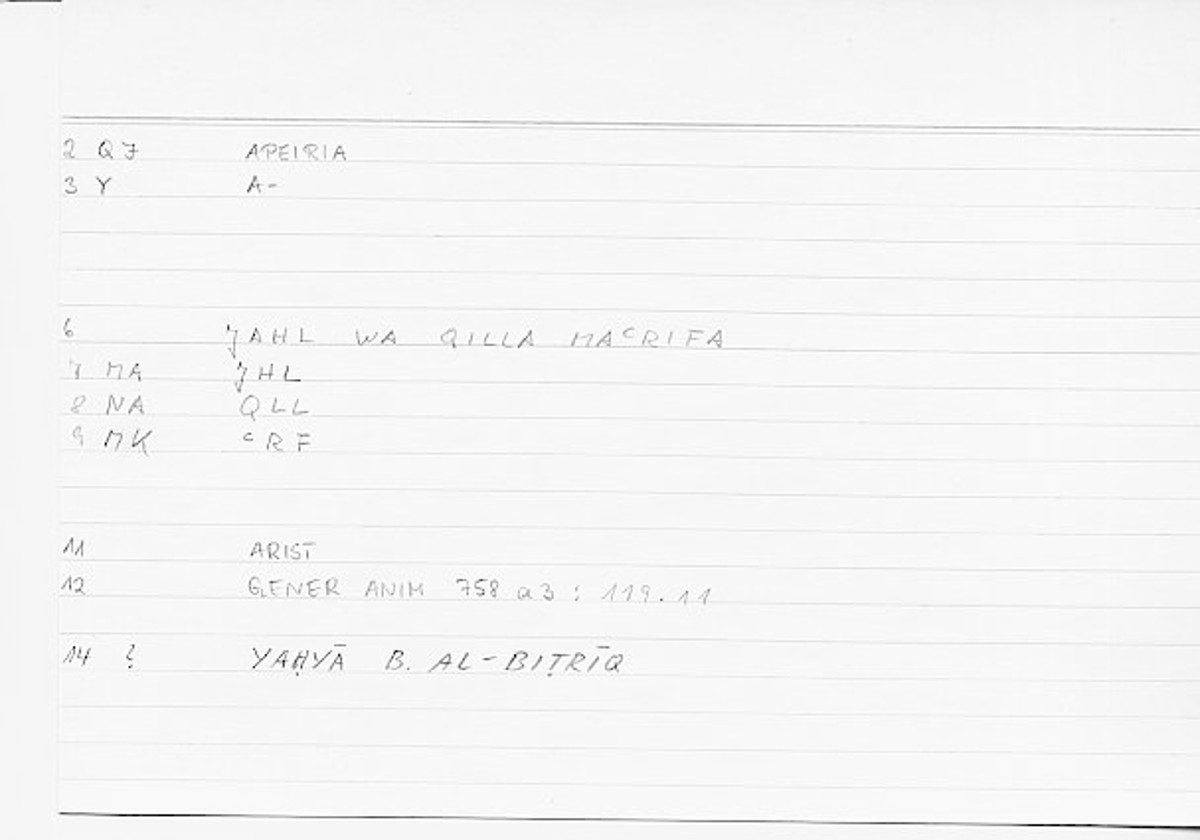 2 QJ APEIRIA
3 Y A-
6 JAHL WA QILLA MAᶜRIFA
7 MA JHL
8 NA QLL
9 MK ᶜRF
11 ARIST
12 GENER ANIM 758 a3 : 119.11
14 ? YAḤYĀ B. AL-BIṬRĪQ